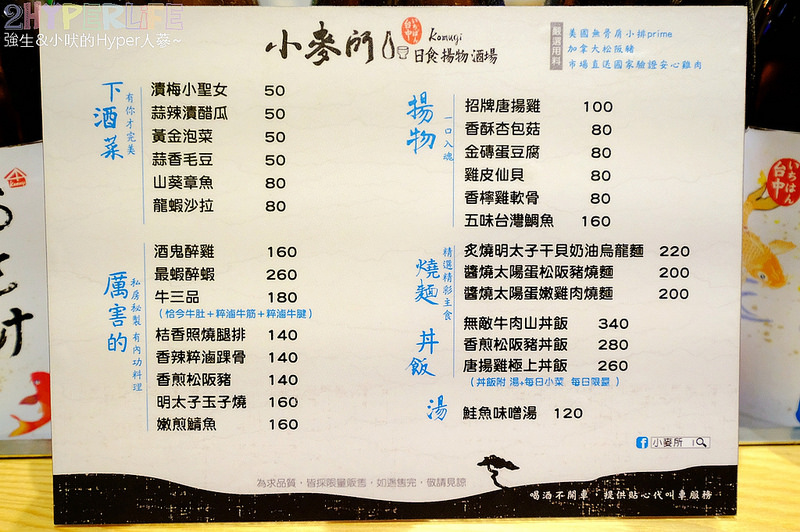 2HYPERLIFE
強生&小吠的Hyper人蔘~
小麥所
いちばん
台中
Komugi
日食揚物酒場
嚴選用料
美國無骨肩小排prime
加拿大松阪豬
市場直送國家驗證安心雞肉
下酒菜
有你才完美
漬梅小聖女 50
蒜辣漬醋瓜 50
黃金泡菜 50
蒜香毛豆 50
山葵章魚 80
龍蝦沙拉 80
厲害的
私房秘製 有內功料理
酒鬼醉雞 160
最蝦醉蝦 260
牛三品 180
(恰今牛肚+粹滷牛筋+粹滷牛腱)
桔香照燒腿排 140
香辣粹滷踝骨 140
香煎松阪豬 140
明太子玉子燒 160
嫩煎鯖魚 160
揚物
一口入魂
招牌唐揚雞 100
香酥杏包菇 80
金磚蛋豆腐 80
雞皮仙貝 80
香檸雞軟骨 80
五味台灣鯛魚 160
燒麵
精選精彩主食
炙燒明太子干貝奶油烏龍麵 220
醬燒太陽蛋松阪豬燒麵 200
醬燒太陽蛋嫩雞肉燒麵 200
丼飯
無敵牛肉山丼飯 340
香煎松阪豬丼飯 280
唐揚雞極上丼飯 260
(丼飯附 湯+每日小菜 每日限量)
湯
鮭魚味噌湯 120
f 小麥所
為求品質，皆採限量販售，如遇售完，敬請見諒
喝酒不開車‧提供貼心代叫車服務
いちばん
台中